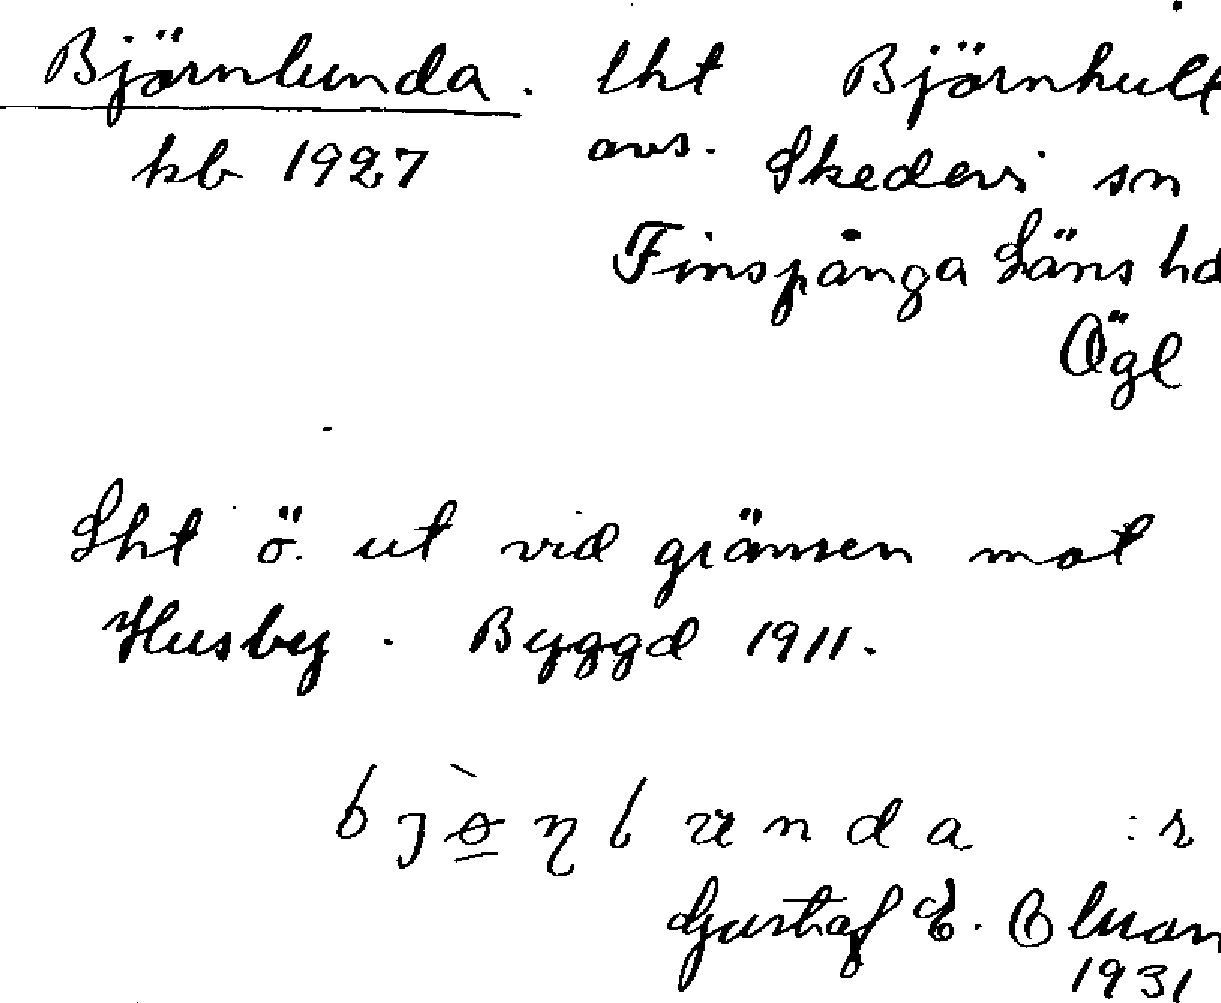 Björnlunda. lht Björnhult
kb 1927 avs. Skedevi sn
Finspånga Läns hd
Ögl
Lht ö. ut vid gränsen mot
Husby. Byggd 1911.
Gustaf E.
1931